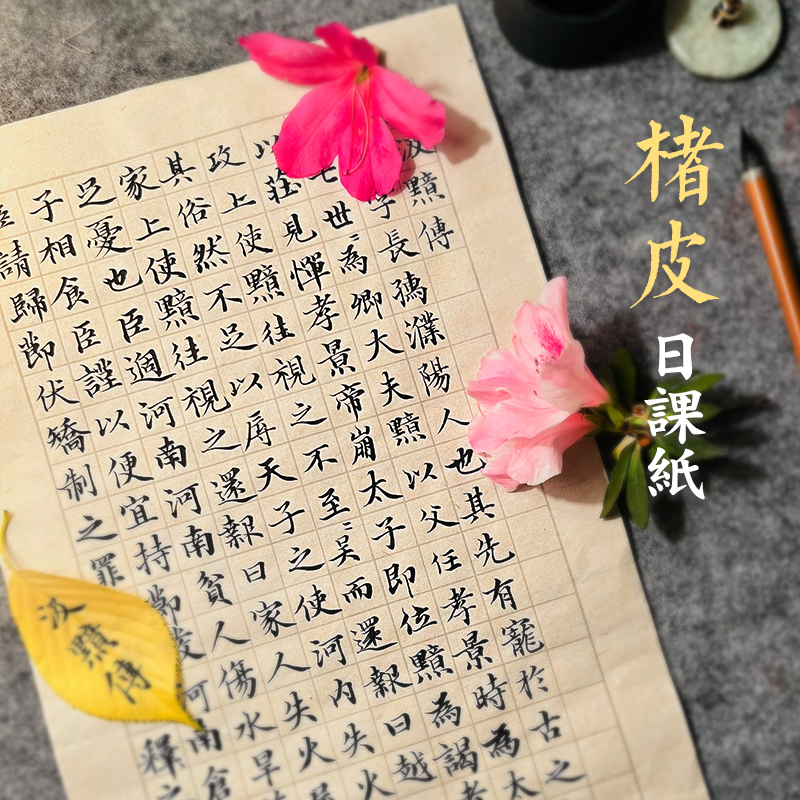 楮皮
日課紙
汲黯傳
字長孺濮陽人也其先有寵於古之
七世〻為卿大夫黯以父任孝景時為太
以莊見憚孝景帝崩太子即位黯為謁者
攻上使黯往視之不至〻吳而還報曰越
其俗然不足以辱天子之使河內失火
家上使黯往視之還報曰家人失火屋
足憂也臣過河南河南貧人傷水旱
子相食臣謹以便宜持節發河南倉
臣請歸節伏矯制之罪釋之
汲黯傳